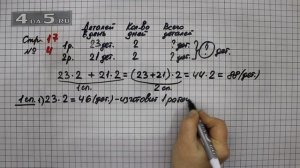 4 du 5
Стр. 17
№ 4
Деталей в день
Кол-во дней
Всего деталей
1р. 23дет. 2 ? дет.
2р. 21 дет. 2 ? дет.
? дет.
23·2 + 21·2 = (23+21)·2 = 44·2 = 88(дет.)
1сп. 2сп.
1сп. 1) 23·2 = 46 (дет.) - изготовит 1 рабоч